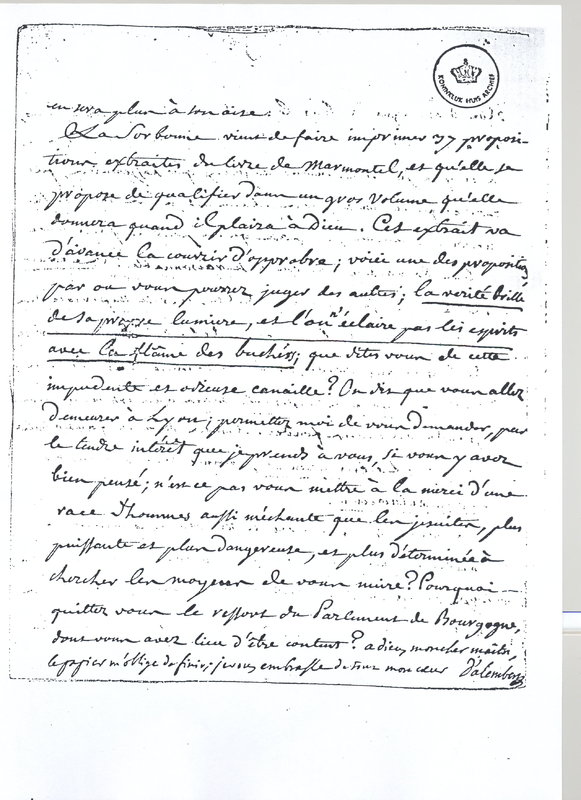 KONINKLIJK HUIS ARCHIEF
en sera plus à son aise.
La Sorbonne vient de faire imprimer 37 proposi-
tions extraites du livre de Marmontel, et qu'elle se
propose de qualifier dans un gros volume qu'elle
donnera quand il plaira à Dieu. Cet extrait va
d'avance la couvrir d'opprobre; voici une des propositions
par où vous pourrez juger des autres; la verité brille
de sa propre lumiere, et l'on n'éclaire pas les esprits
avec la flâme des buchers; que dites vous de cette
impudente et odieuse canaille? On dit que vous allez
demeurer à Lyon; permettez moi de vous demander, par
le tendre intérêt que je prends à vous, si vous y avez
bien pensé; n'est ce pas vous mettre à la merci d'une
race d'hommes aussi méchante que les jesuites, plus
puissante et plus dangereuse, et plus déterminée à
chercher les moyens de vous nuire? Pourquoi
quittez vous le ressort du Parlement de Bourgogne,
dont vous avez lieu d'être content? adieu, mon cher maitre,
le papier m'oblige de finir; je vous embrasse de tout mon cœur D'alembert